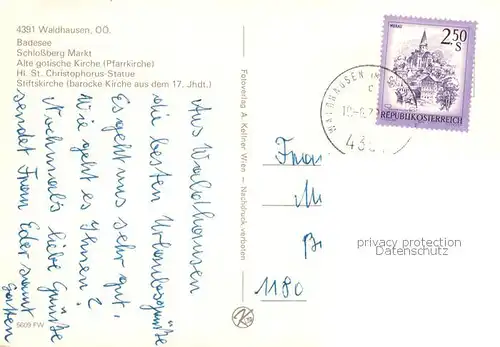 4381 Waldhausen, OÖ.
Badesee
Schloßberg Markt
Alte gotische Kirche (Pfarrkirche)
Hl. St. Christophorus-Statue
Stiftskirche (barocke Kirche aus dem 17. Jhdt.)
Aus Waldhausen
die besten Urlaubsgrüße
Es geht uns sehr gut.
Wie geht es Ihnen?
Nochmals liebe Grüße
sendet Frau Eder samt
Gatten
5609 FW
Fotoverlag A. Kellner Wien – Nachdruck verboten
MURAU
2.50
S
REPUBLIK ÖSTERREICH
WALDHAUSEN IM
Frau
M
1180
privacy protection
Datenschutz